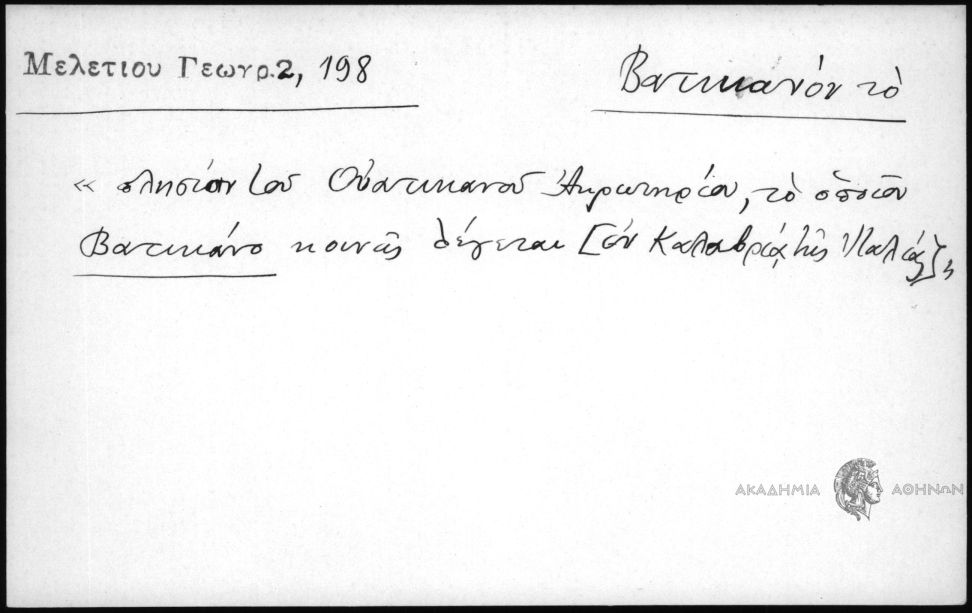 Μελετιου Γεωγρ. 2, 198
Βατικανόν τὸ
« πλησίον τοῦ Οὐατικανοῦ Ἀκρωτηρίου, τὸ ὁποῖον
Βατικάνο κοινῶς λέγεται [ἐν Καλαβρίᾳ τῆς Ἰταλίας] »
ΑΚΑΔΗΜΙΑ ΑΘΗΝΩΝ